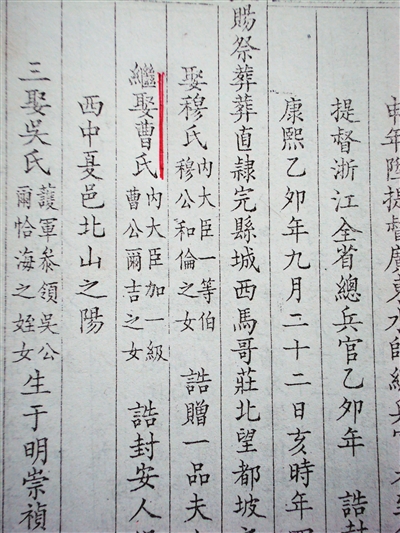 申年陞提督廣東水師總兵官
提督浙江全省總兵官乙卯年 誥封
康熙乙卯年九月二十二日亥時年
賜祭葬葬直隸完縣城西馬哥莊北望都坡之
娶穆氏 內大臣一等伯穆公和倫之女 誥贈一品夫
繼娶曹氏 內大臣加一級曹公爾吉之女 誥封安人
西中夏邑北山之陽
三娶吳氏 護軍叅領吳公爾恰海之姪女 生于明崇禎